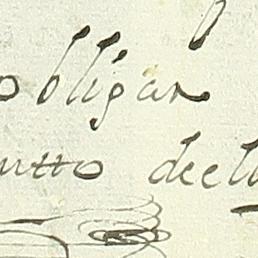 obligar
utto decl